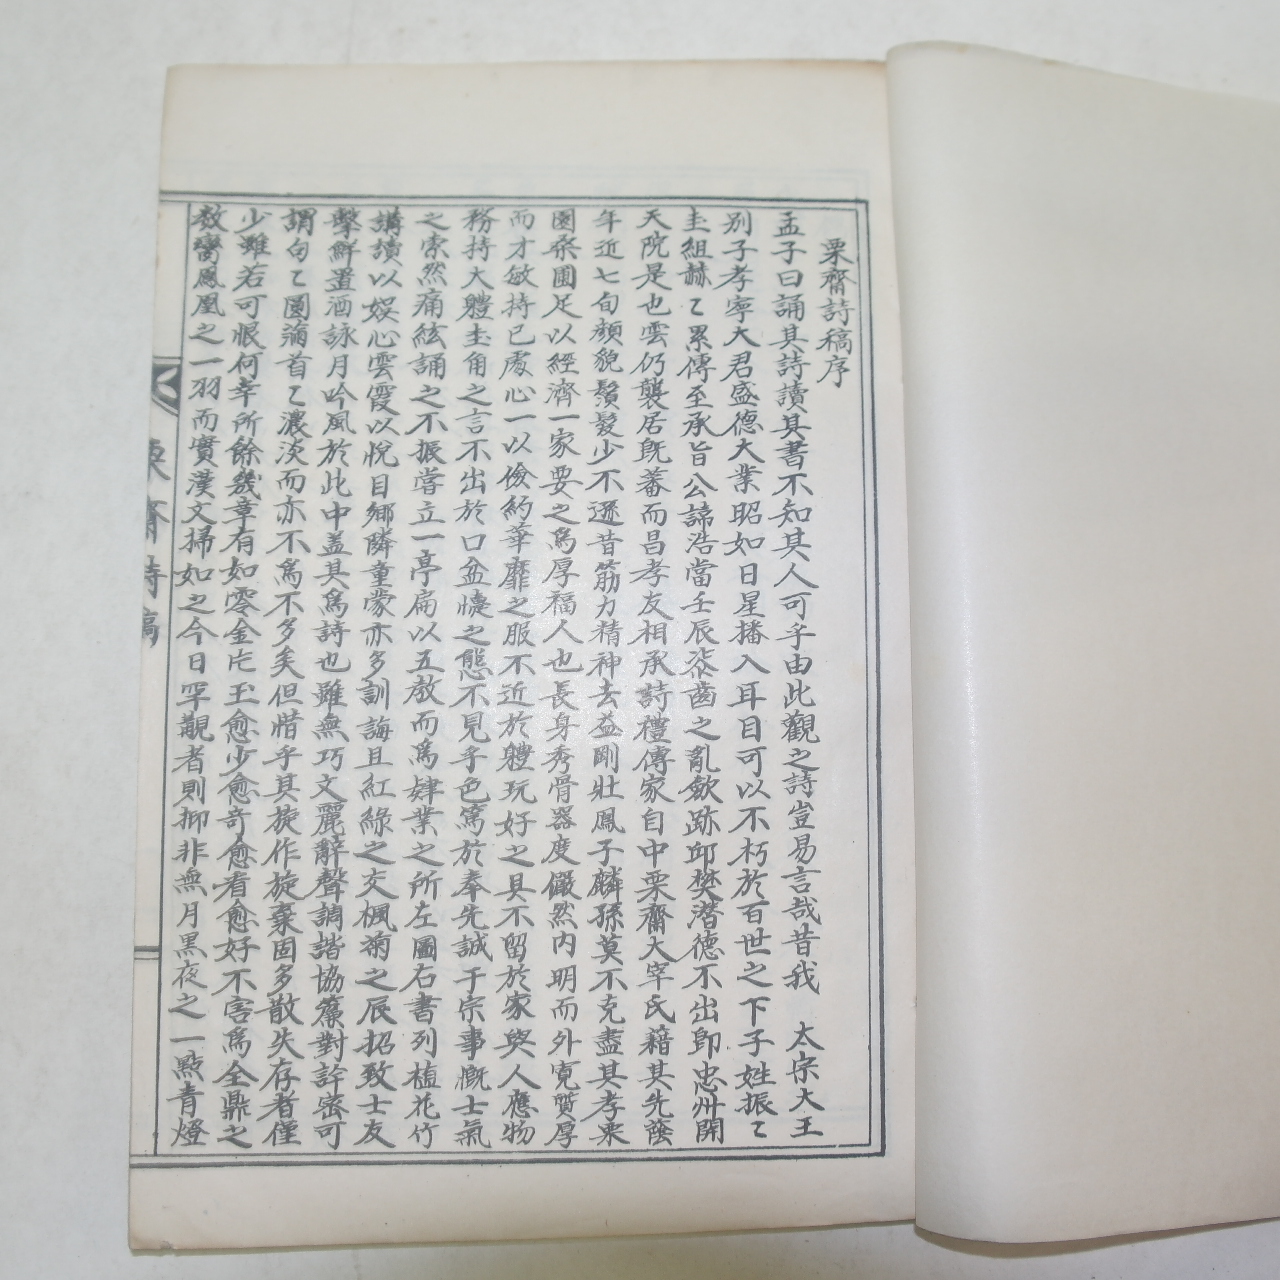 栗齋詩稿序
孟子曰誦其詩讀其書不知其人可乎由此觀之詩豈易言哉昔我 太宗大王
別子孝寧大君盛德大業昭如日星播入耳目可以不朽於百世之下子姓振〻
圭組赫〻累傳至承旨公諱浩當壬辰漆齒之亂斂跡邱樊潛德不出卽忠州開
天院是也雲仍襲居旣蕃而昌孝友相承詩禮傳家自中栗齋大宰氏藉其先蔭
年近七旬顏貌鬚髮少不遜昔筋力精神去益剛壯鳳子麟孫莫不克盡其孝栗
園桑圃足以經濟一家要之爲厚福人也長身秀骨器度儼然內明而外寬質厚
而才敏持己處心一以儉約華靡之服不近於軆玩好之具不留於家與人應物
務持大軆圭角之言不出於口忿懥之態不見乎色篤於奉先誠于宗事慨士氣
之索然痛絃誦之不振嘗立一亭扁以五敎而爲肄業之所左圖右書列植花竹
講讀以娛心雲霞以悅目鄉隣童蒙亦多訓誨且紅綠之交楓菊之辰招致士友
擊鮮置酒詠月吟風於此中盖其爲詩也雖無巧文麗辭聲調諧協簾對詳密可
謂句〻圓滿首〻濃淡而亦不爲不多矣但惜乎其旋作旋棄固多散失存者僅
少雖若可恨何幸所餘幾章有如零金片玉愈少愈奇愈看愈好不害爲全鼎之
一臠鳳凰之一羽而實漢文掃如之今日罕覯者則抑非無月黑夜之一點靑燈
栗齋詩稿